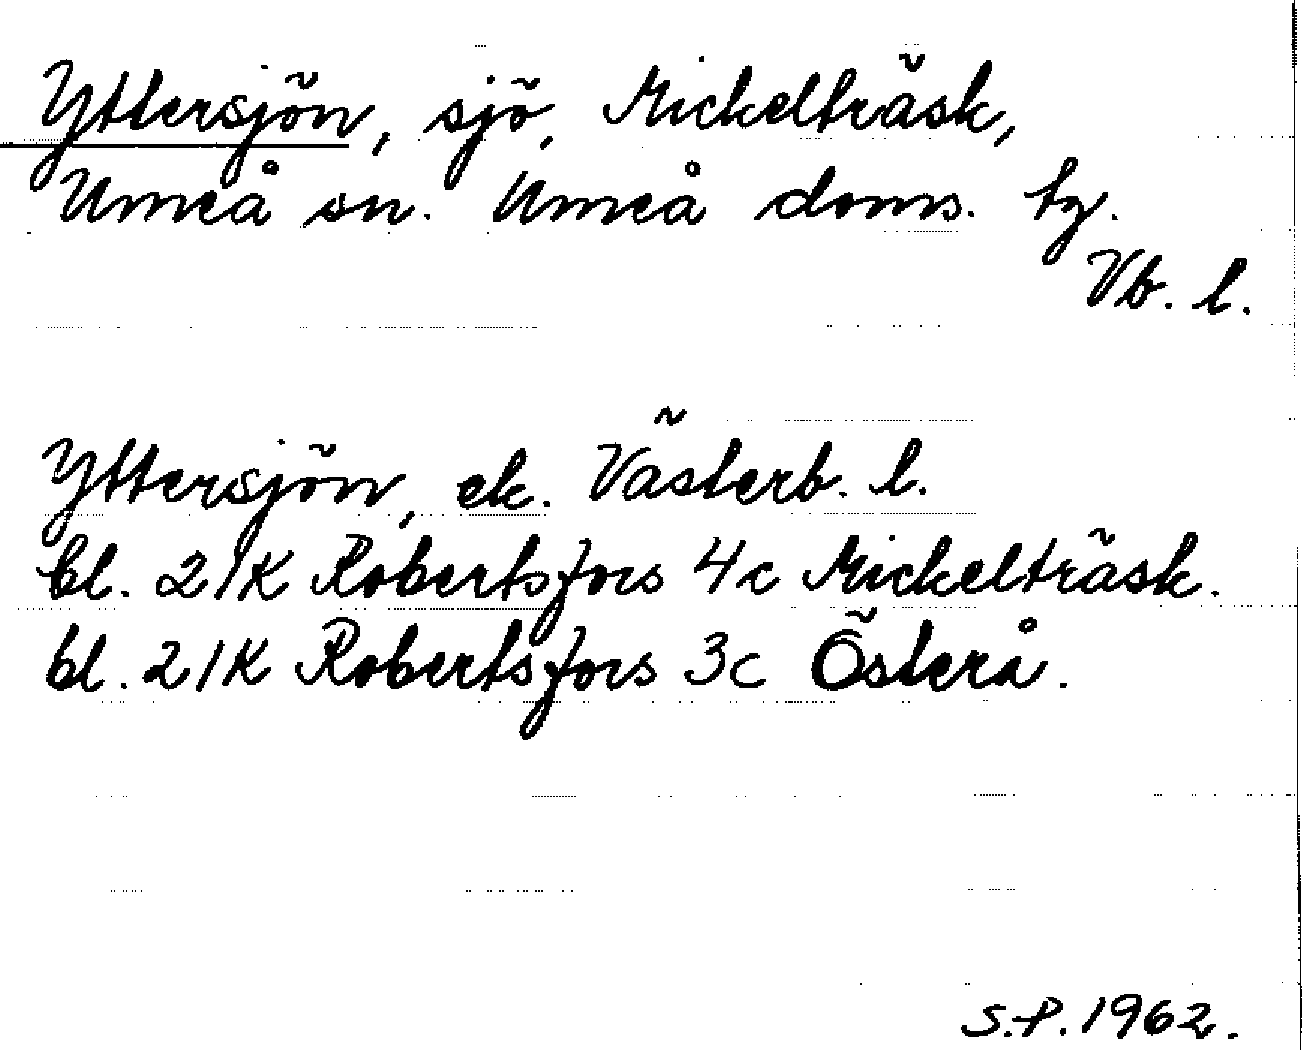 Yttersjön, sjö, Mickelträsk,
Umeå sn. Umeå doms. tg.
Vb. l.
Yttersjön, ek. Västerb. l.
bl. 21K Robertsfors 4c Mickelträsk.
bl. 21K Robertsfors 3c Österå.
S.P. 1962.